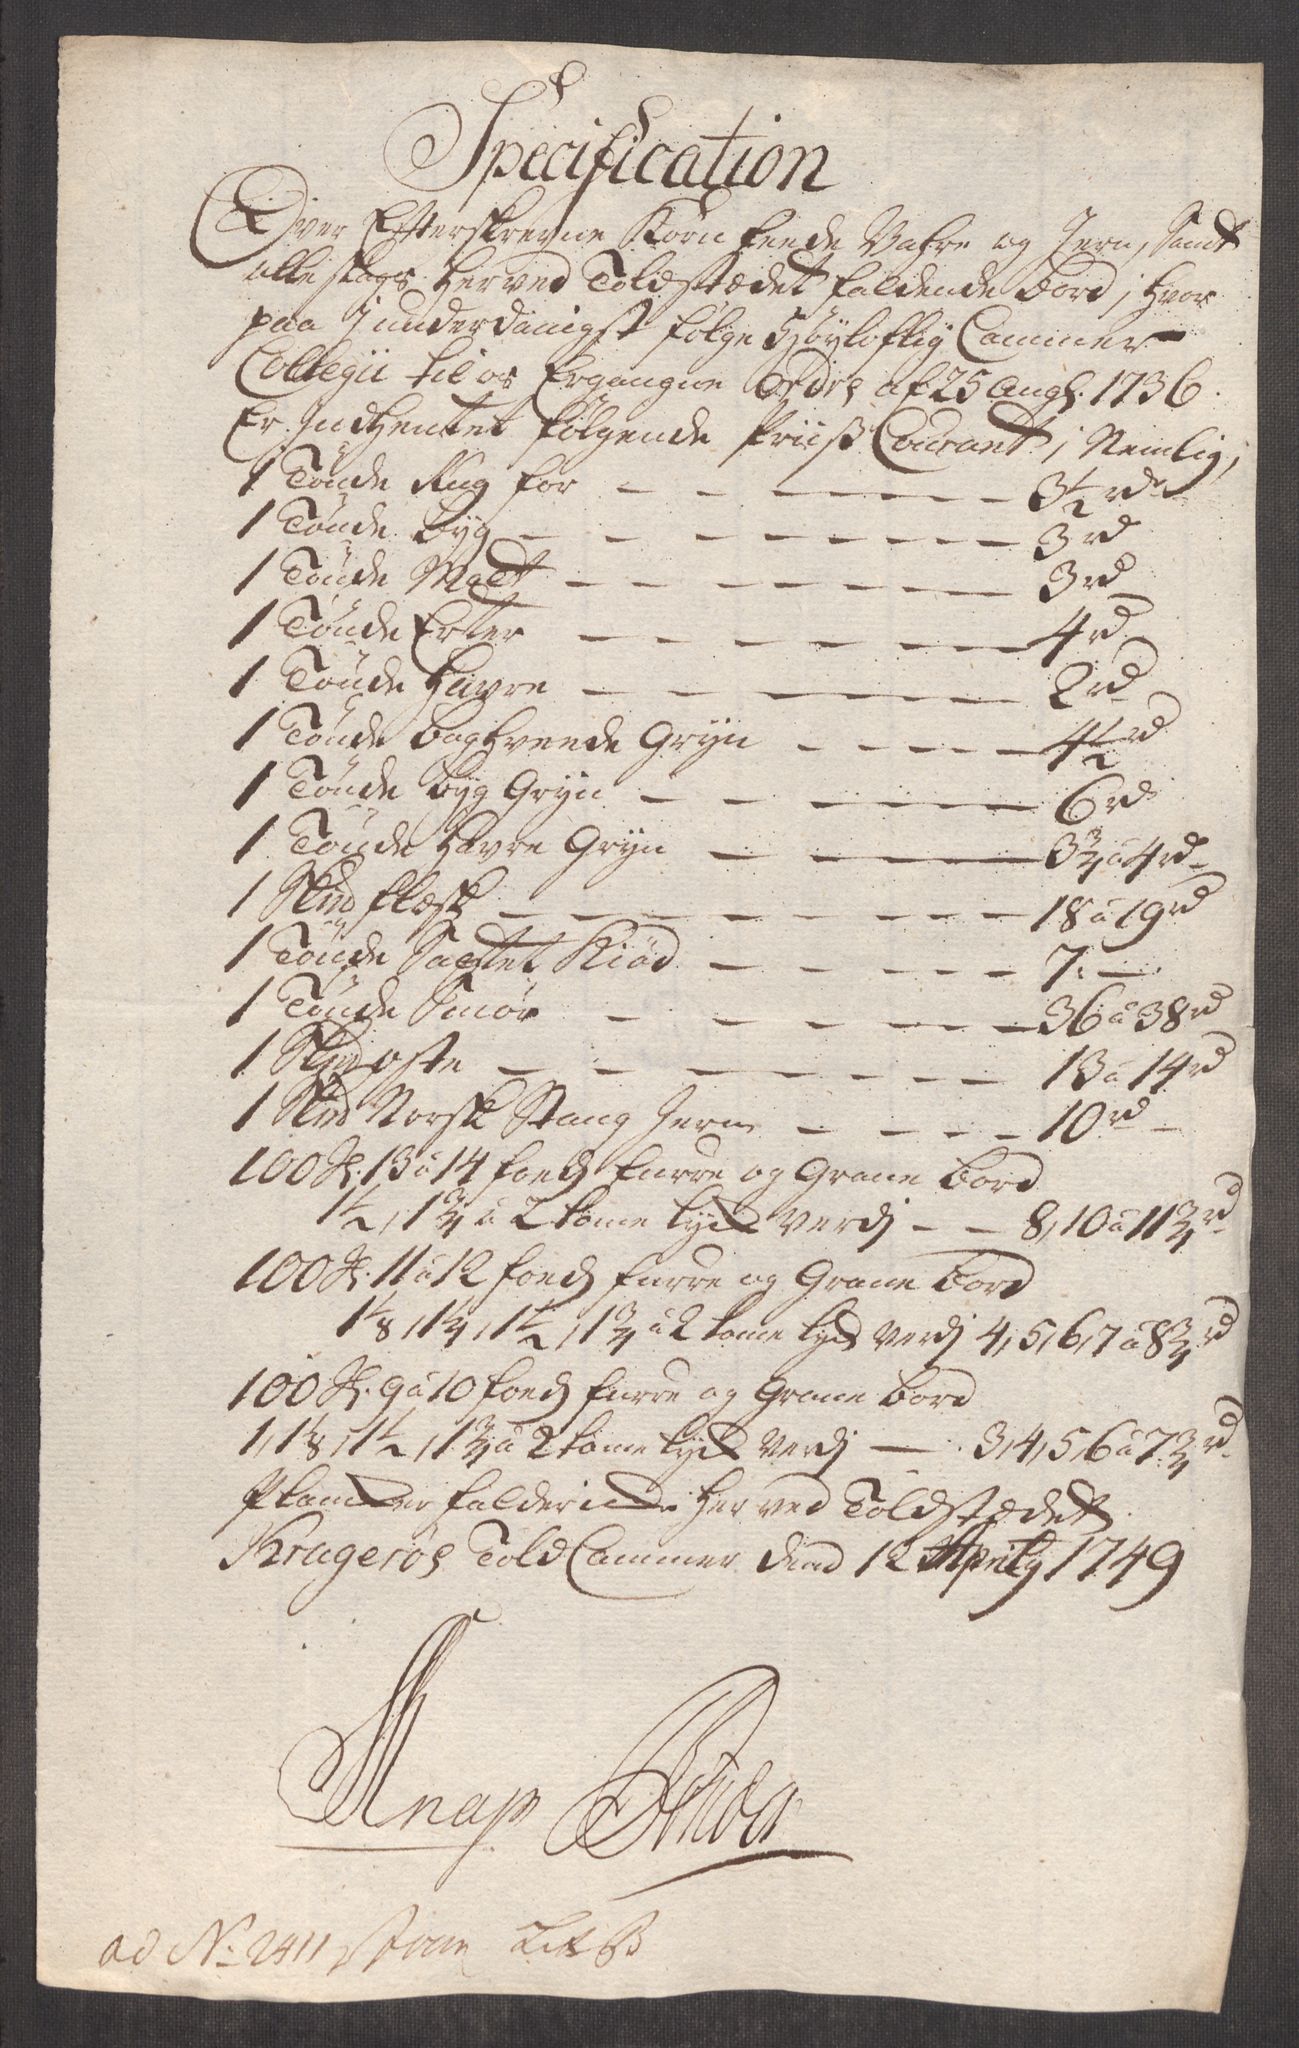 Specification
Over Efterskrevne Korn feede Vahre og Jern, Samt
alle slags her ved Toldstædet faldende bord, hvor
paa I underdanigst følge Høyloflig Cammer
Collegii til os Ergangne Ordre af 25 Augs. 1736.
Er Indhentet følgende Priiß Courant, Nemlig;
1 Tønde Rug for - - - - - 3 1/2 rd
1 Tønde byg - - - - - 3 rd
1 Tønde Malt - - - - - 3 rd
1 Tønde Erter - - - - - 4 rd
1 Tønde Havre - - - - - 2 rd
1 Tønde boghveede Gryn - - - - 4 1/2 rd
1 Tønde byg Gryn - - - - - 6 rd
1 Tønde Havre Gryn - - - - 3 3/4 a 4 rd
1 Skpd flæsk - - - - - 18 a 19 rd
1 Tønde Saltet Kiød - - - - 7. -
1 Tønde Smør - - - - - 36 a 38 rd
1 Skpd oste - - - - - 13 a 14 rd
1 Skpd Norsk Stang Jern - - - - 10 rd -
100 St. 13 a 14 foeds furre og Grane bord
1 1/2, 1 3/4 a 2 tome tyk Verdj - - 8, 10 a 11 3/4 rd
100 St. 11 a 12 foeds furre og Grane bord
1 1/8, 1 1/4, 1 1/2, 1 3/4 a 2 tome tyk Verdj 4, 5, 6, 7 a 8 3/4 rd
100 St. 9 a 10 foeds furre og Grane bord
1, 1 1/8, 1 1/2, 1 3/4 a 2 tome tyk Verdj - 3, 4, 5, 6 a 7 3/4 rd
Plancker falder icke her ved Toldstædet.
Kragerøe Told Cammer dend 12 Aprily 1749
Knap
ad No. 2411 Litr B